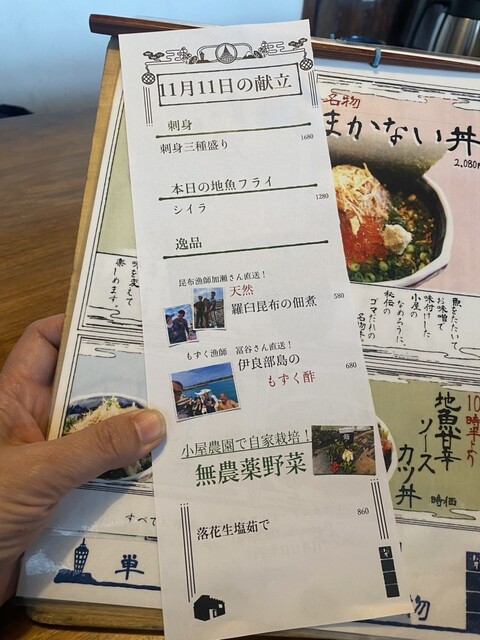 11月11日の献立
刺身
刺身三種盛り
1680
本日の地魚フライ
シイラ
1280
逸品
昆布漁師加瀬さん直送！
天然
羅臼昆布の佃煮
580
もずく漁師 冨谷さん直送！
伊良部島の
もずく酢
680
小屋農園で自家栽培！
無農薬野菜
落花生塩茹で
860
名物
まかない丼
2,080
魚をたたいて
お味噌で
味付けした
小屋の
なめろうに、
秘伝の
ゴマだれの
味を変えて
楽しめます。
10時半より
地魚甘辛
ソース
カツ丼
時価
すべて
単
物